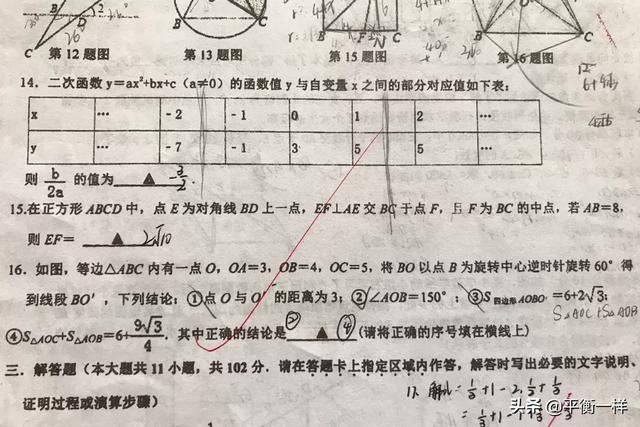 B D 2 C
B C
B F C
B C
第12题图 第13题图 第15题图 第16题图
14. 二次函数 y=ax²+bx+c (a≠0) 的函数值 y 与自变量 x 之间的部分对应值如下表:
x … -2 -1 0 1 2 …
y … -7 -1 3 5 5 …
则 b/2a 的值为 ▲ .
15.在正方形 ABCD 中, 点 E 为对角线 BD 上一点, EF⊥AE 交 BC 于点 F, 且 F 为 BC 的中点, 若 AB=8,
则 EF= ▲ 2√10
16. 如图, 等边△ABC 内有一点 O, OA=3, OB=4, OC=5, 将 BO 以点 B 为旋转中心逆时针旋转 60° 得
到线段 BO′, 下列结论: ①点 O 与 O′ 的距离为 3; ②∠AOB=150°; ③S四边形AOBO′=6+2√3;
S△AOC+S△AOB
④S△AOC+S△AOB=6+9√3/4. 其中正确的结论是 ② ▲ ④ (请将正确的序号填在横线上)
三. 解答题 (本大题共 11 小题, 共 102 分. 请在答题卡上指定区域内作答, 解答时写出必要的文字说明、
证明过程或演算步骤)
头条 @平衡一样